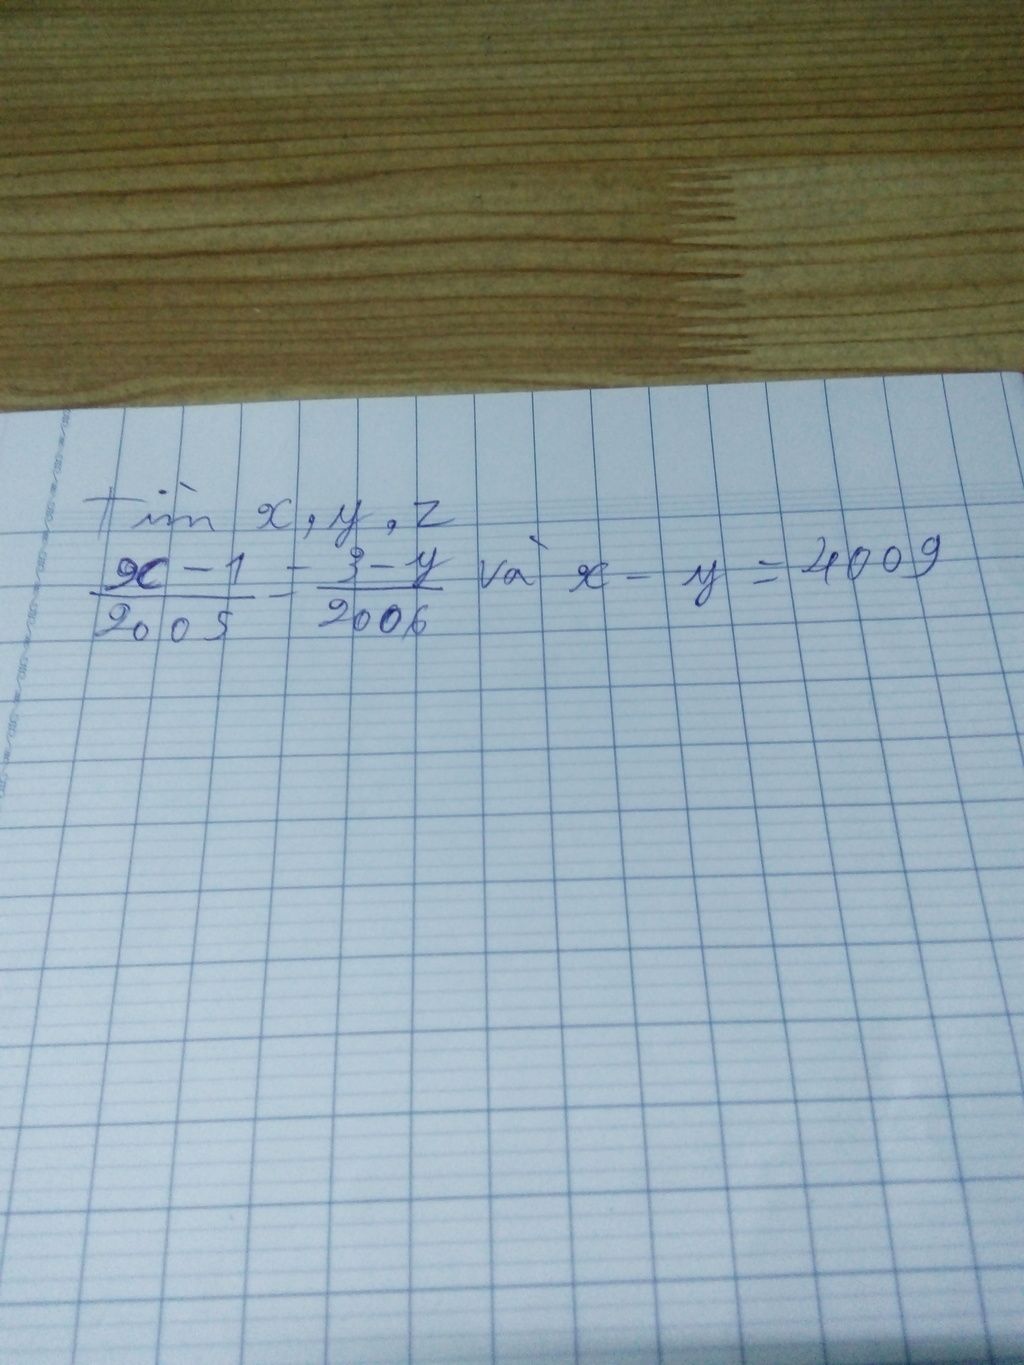 Tìm x, y, z
x - 1 / 2005 = 3 - y / 2006 và x - y = 4009